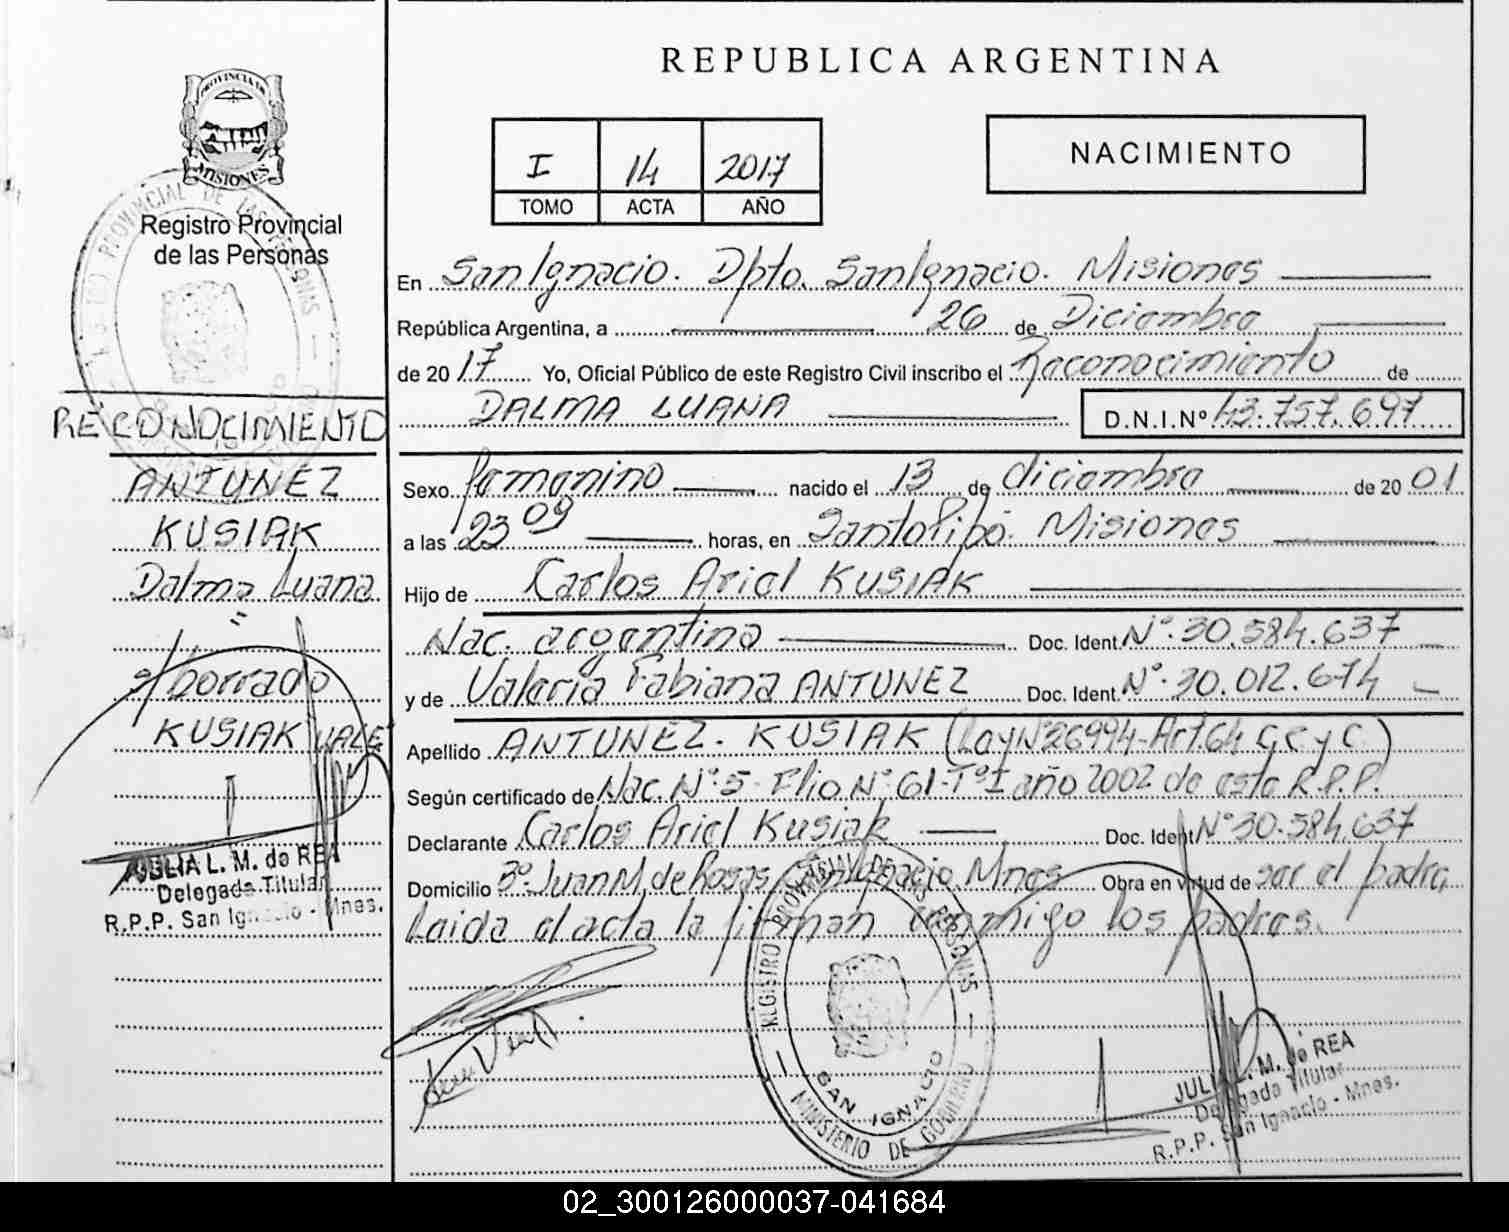 REPUBLICA ARGENTINA
PROVINCIA DE
MISIONES
Registro Provincial
de las Personas
I 14 2017
TOMO ACTA AÑO
NACIMIENTO
En San Ignacio. Dpto. San Ignacio. Misiones
República Argentina, a 26 de Diciembre
de 2017 Yo, Oficial Público de este Registro Civil inscribo el Reconocimiento de
DALMA LUANA D.N.I.Nº 43.757.697
Sexo femenino nacido el 13 de diciembre de 2001
a las 23 09 horas, en Santo Pipó. Misiones
Hijo de Carlos Ariel KUSIAK
Nac. argentina Doc. Ident Nº. 30.584.637
y de Valeria Fabiana ANTUNEZ Doc. Ident. Nº. 30.012.674
Apellido ANTUNEZ. KUSIAK (Ley Nº26994-Art 64 C.C y C.)
Según certificado de Nac. Nº.5- Flio Nº. 61-Tº I año 2002 de este R.P.P.
Declarante Carlos Ariel Kusiak Doc. Ident Nº 30.584.637
Domicilio Bº. Juan M. de Rosas, San Ignacio, Mnes Obra en virtud de ser el padre,
Leida el acta la firman conmigo los padres.
RECONOCIMIENTO
ANTUNEZ
KUSIAK
Dalma Luana
s/borrado
KUSIAK VALE
JULIA L. M. de REA
Delegada Titular
R.P.P. San Ignacio - Mnes.
REGISTRO PROVINCIAL DE LAS PERSONAS
SAN IGNACIO
MINISTERIO DE GOBIERNO
JULIA L. M. de REA
Delegada Titular
R.P.P. San Ignacio - Mnes.
02_300126000037-041684